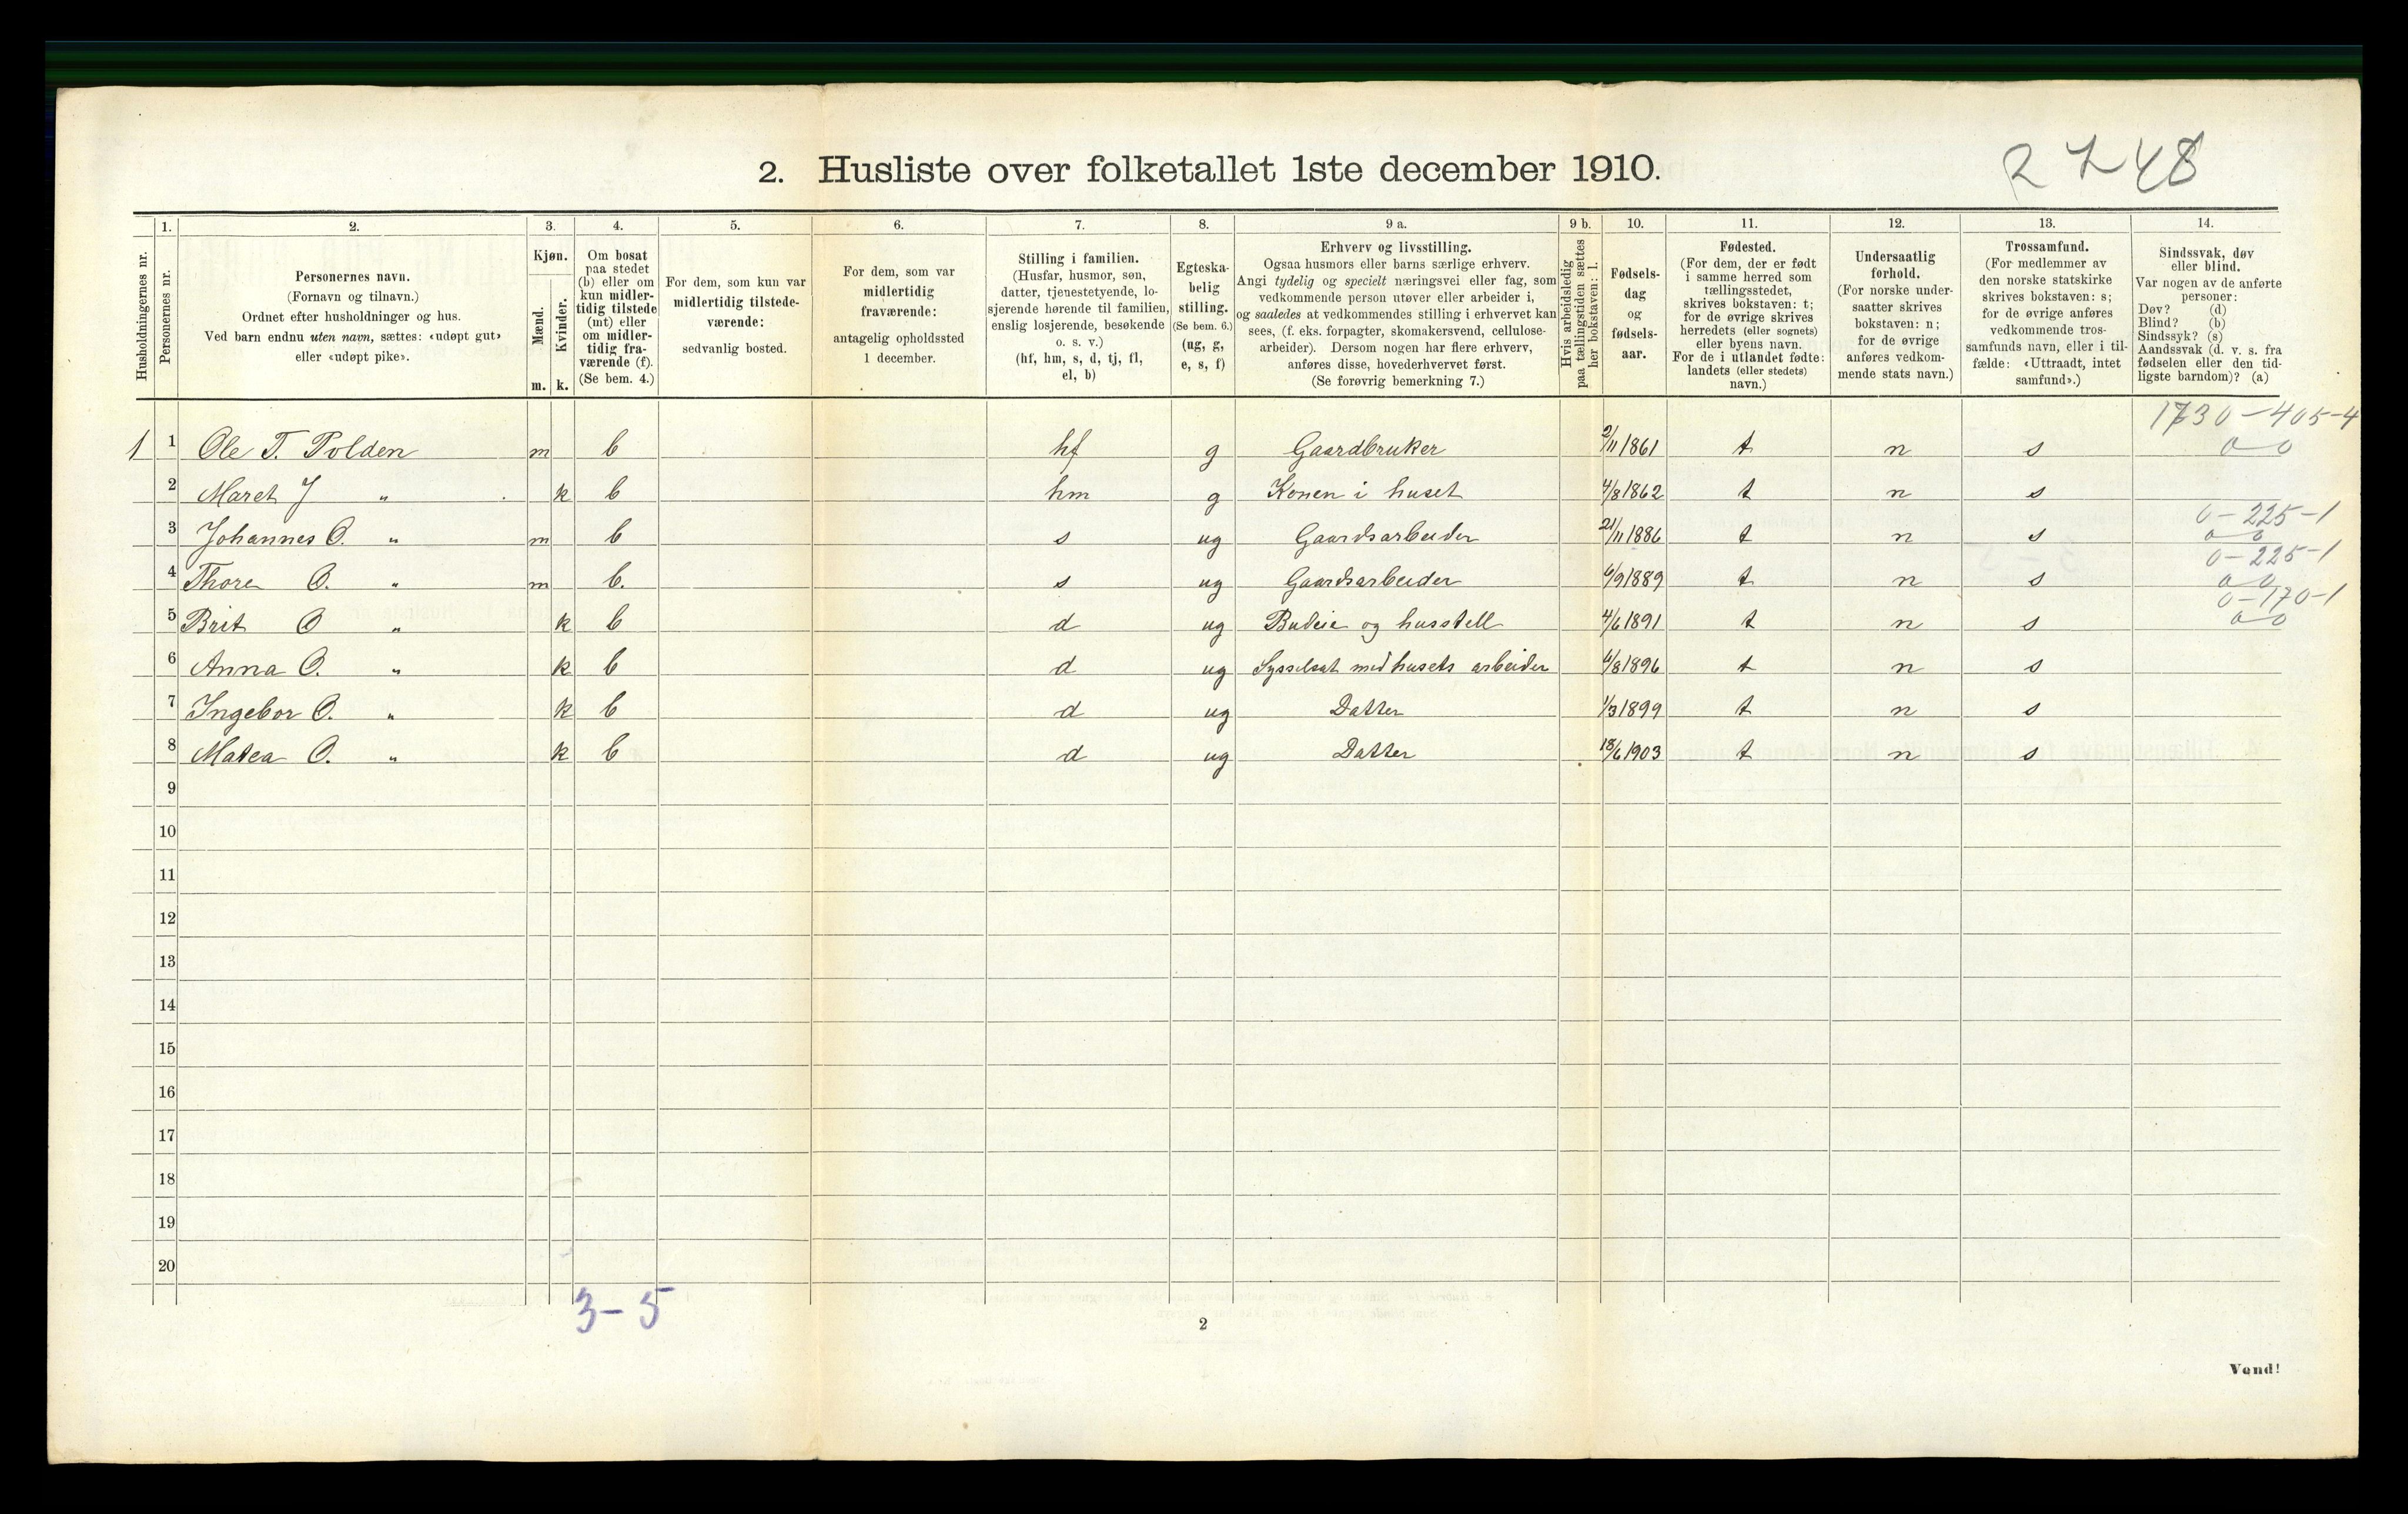 2 7 48
2. Husliste over folketallet 1ste december 1910.
Husholdningernes nr.
1.
Personernes nr.
2.
Personernes navn.
(Fornavn og tilnavn.)
Ordnet efter husholdninger og hus.
Ved barn endnu uten navn, sættes: «udøpt gut»
eller «udøpt pike».
3.
Kjøn.
Mænd.
Kvinder.
m. k.
4.
Om bosat
paa stedet
(b) eller om
kun midler-
tidig tilstede
(mt) eller
om midler-
tidig fra-
værende (f).
(Se bem. 4.)
5.
For dem, som kun var
midlertidig tilstede-
værende:
sedvanlig bosted.
6.
For dem, som var
midlertidig
fraværende:
antagelig opholdssted
1 december.
7.
Stilling i familien.
(Husfar, husmor, søn,
datter, tjenestetyende, lo-
sjerende hørende til familien,
enslig losjerende, besøkende
o. s. v.)
(hf, hm, s, d, tj, fl,
el, b)
8.
Egteska-
belig
stilling.
(Se bem. 6.)
(ug, g,
e, s, f)
9 a.
Erhverv og livsstilling.
Ogsaa husmors eller barns særlige erhverv.
Angi tydelig og specielt næringsvei eller fag, som
vedkommende person utøver eller arbeider i,
og saaledes at vedkommendes stilling i erhvervet kan
sees, (f. eks. forpagter, skomakersvend, cellulose-
arbeider). Dersom nogen har flere erhverv,
anføres disse, hovederhvervet først.
(Se forøvrig bemerkning 7.)
9 b.
Hvis arbeidsledig
paa tællingstiden sættes
her bokstaven: l.
10.
Fødsels-
dag
og
fødsels-
aar.
11.
Fødested.
(For dem, der er født
i samme herred som
tællingsstedet,
skrives bokstaven: t;
for de øvrige skrives
herredets (eller sognets)
eller byens navn.
For de i utlandet fødte:
landets (eller stedets)
navn.)
12.
Undersaatlig
forhold.
(For norske under-
saatter skrives
bokstaven: n;
for de øvrige
anføres vedkom-
mende stats navn.)
13.
Trossamfund.
(For medlemmer av
den norske statskirke
skrives bokstaven: s;
for de øvrige anføres
vedkommende tros-
samfunds navn, eller i til-
fælde: «Uttraadt, intet
samfund».)
14.
Sindssvak, døv
eller blind.
Var nogen av de anførte
personer:
Døv? (d)
Blind? (b)
Sindssyk? (s)
Aandssvak (d. v. s. fra
fødselen eller den tid-
ligste barndom)? (a)
1730-405-4
1 1 Ole T. Polden m b hf g Gaardbruker 2/11 1861 t n s 0-0
2 Maret J " k b hm g Konen i huset 4/8 1862 t n s
0-225-1
3 Johannes O. " m b s ug Gaardsarbeider 21/11 1886 t n s 0-0
0-225-1
4 Thore O. " m b. s ug Gaardsarbeider 6/9 1889 t n s 0-0
0-170-1
5 Brit O " k b d ug Budeie og husstell 4/6 1891 t n s 0-0
6 Anna O. " k b d ug Sysselsat med husets arbeider 6/8 1896 t n s
7 Ingebor O. " k b d ug Datter 1/3 1899 t n s
8 Matea O. " k b d ug Datter 18/6 1903 t n s
9
10
11
12
13
14
15
16
17
18
19
20
3-5
2
Vend!